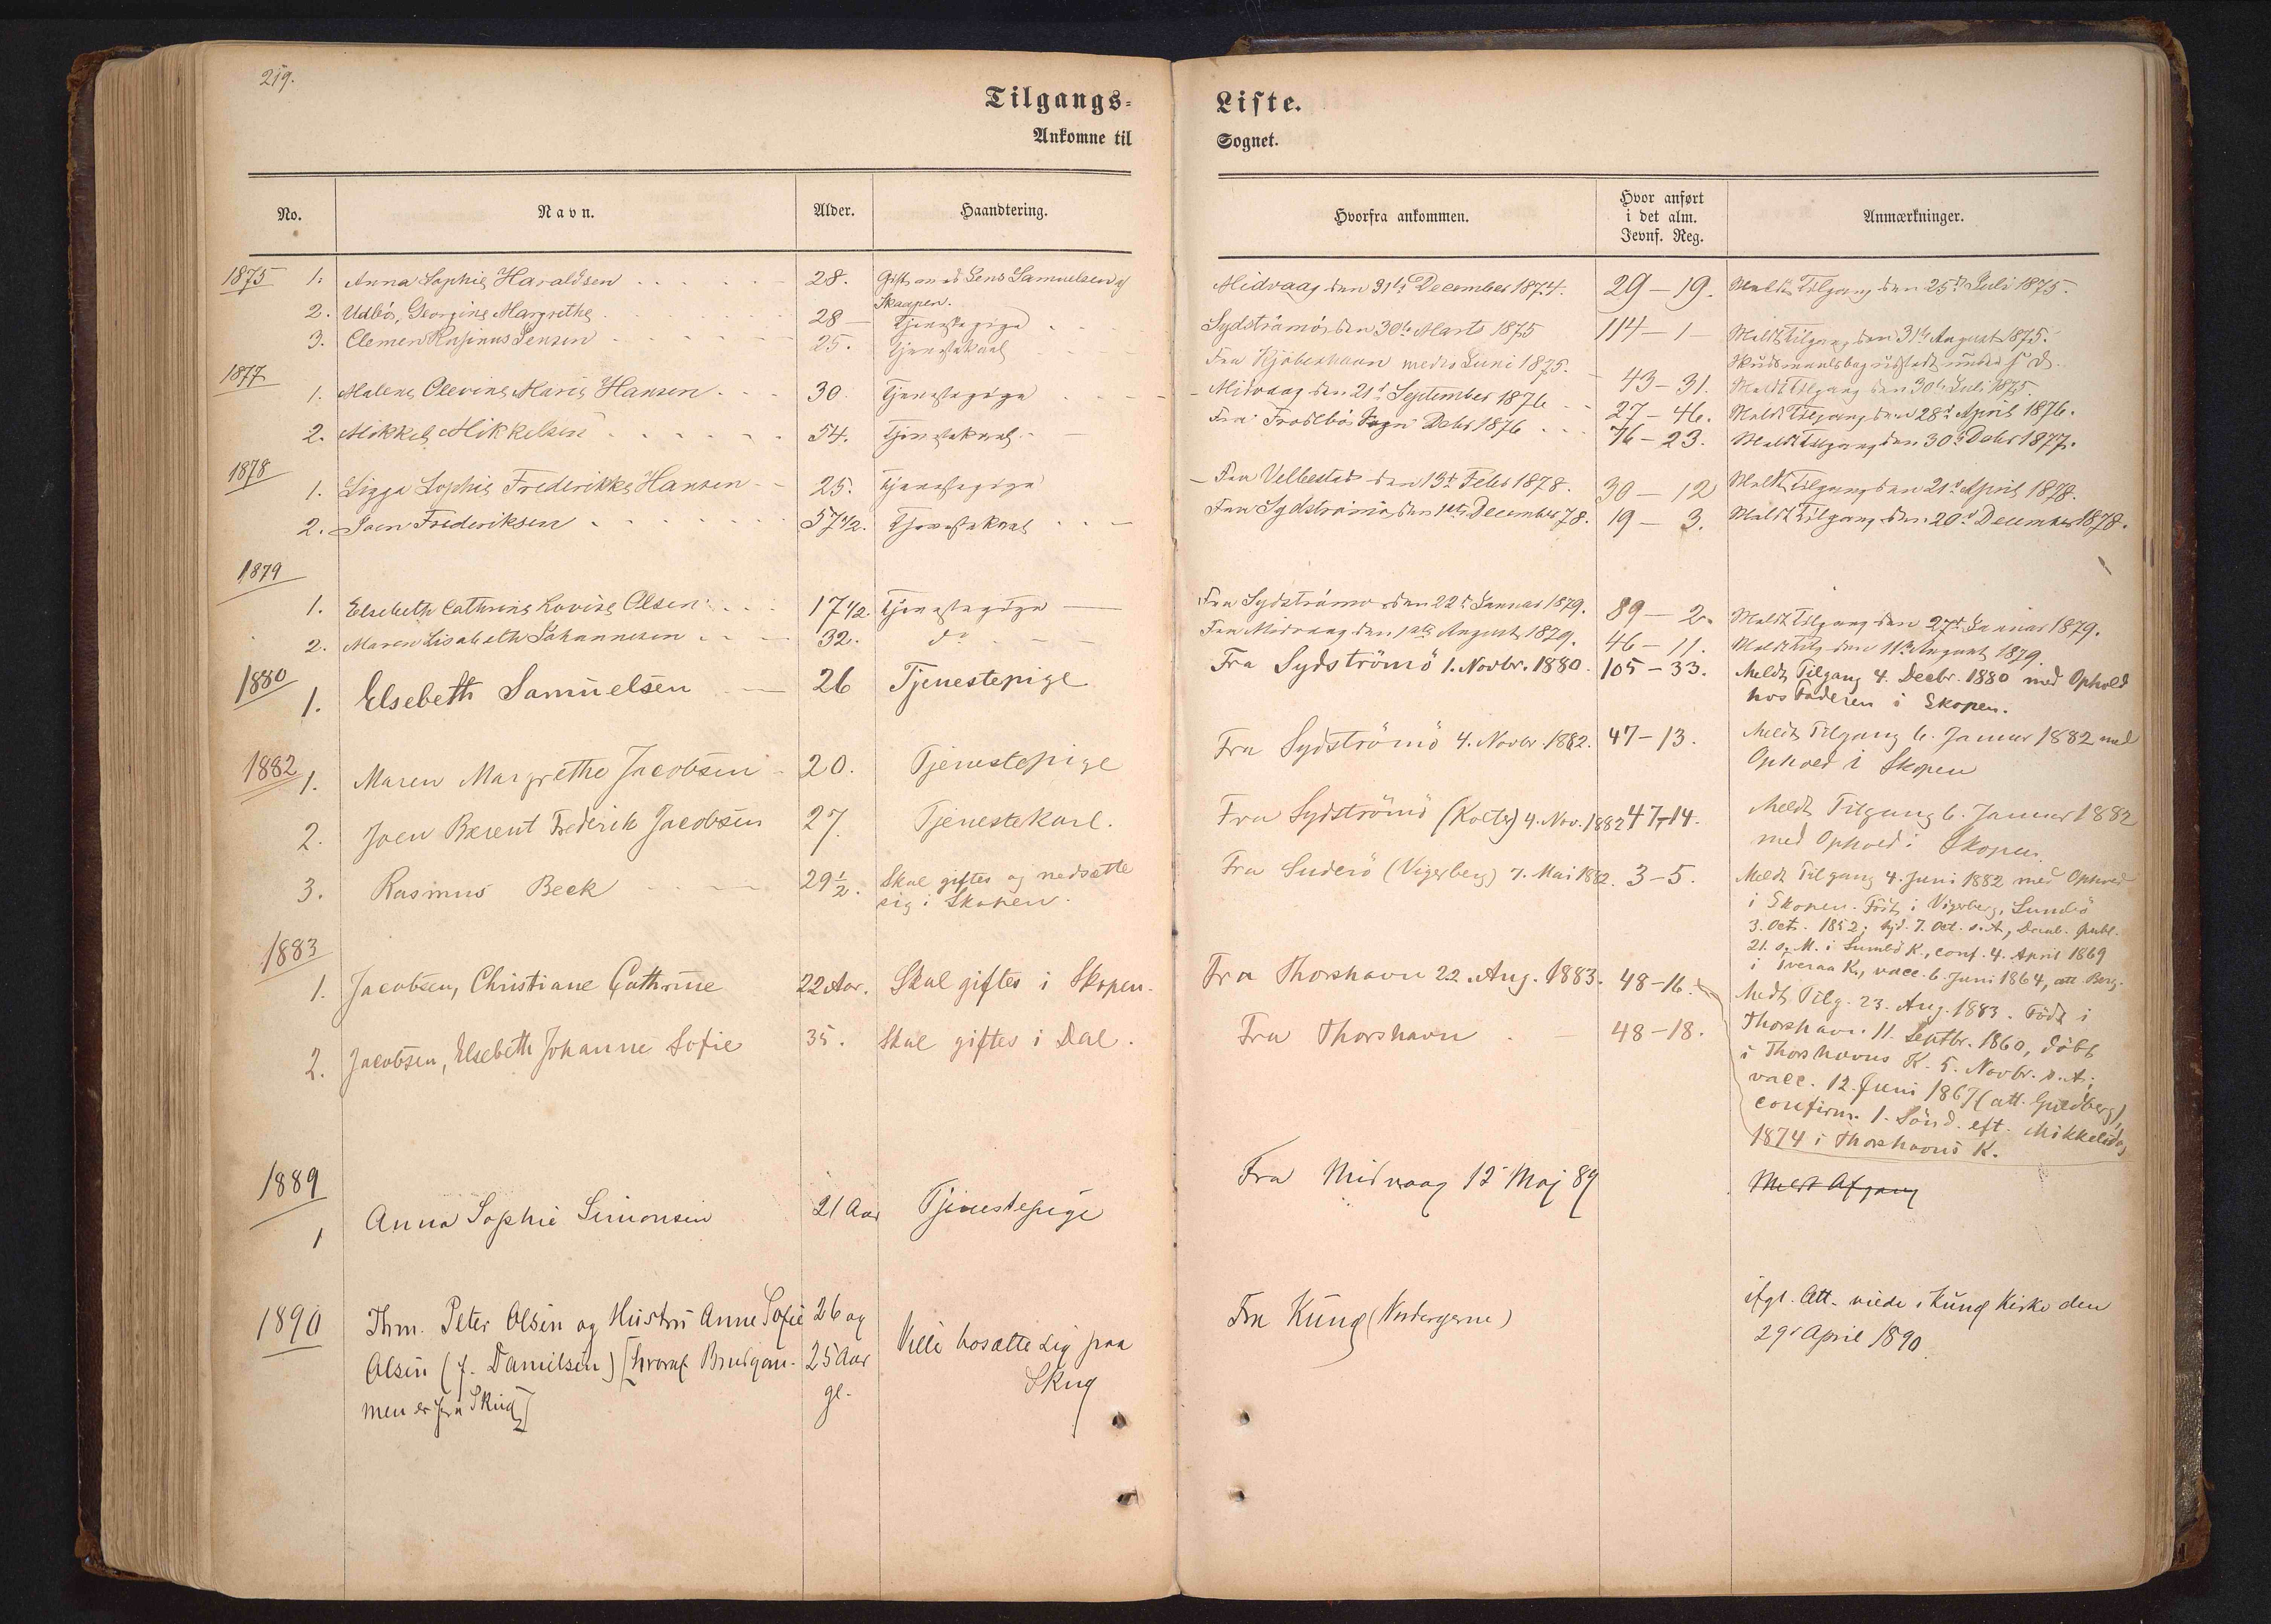 219.
Tilgangs-
Ankomne til
Liste.
Sognet.
No.
Navn.
Alder.
Haandtering.
Hvorfra ankommen.
Hvor anført
i det alm.
Jevnf. Reg.
Anmærkninger.
1875 1. Anna Sophie Haraldsen 28. Gift med Jens Samuelsen af
Skaapen.
Midvaag den 31te December 1874. 29 - 19. Meldt Tilgang den 25de Juli 1875.
2. Udbós, Georgine Margrethe 28 Tjenestepige Sydstrómó den 30te Marts 1875 114 - 1 Meldt Tilgang den 31te August 1875.
3. Clemen Rasmus Jensen 25. Tjenestekarl Fra Kjóbenhavn medio Juni 1875. 43 - 31. Meldt Tilgang den 30te Juli 1875.
1877
1. Malene Olevine Marie Hansen 30. Tjenestepige Midvaag den 21de September 1876 27 - 46. Meldt Tilgang den 28de April 1876.
2. Mikkel Mikkelsen 54. Tjenestekarl Fra Frodebó Sogn Debr 1876 76 - 23. Meldt Tilgang den 30te Debr 1877.
1878
1. Sigga Sophie Frederikke Hansen 25. Tjenestepige Fra Velbestad den 13de Febr 1878. 30 - 12 Meldt Tilgang den 21de April 1878.
2. Joen Frederiksen 57 1/2. Tjenestekarl Fra Sydstrómó den 1ste December 78. 19 - 3. Meldt Tilgang den 20de December 1878.
1879
1. Elsebeth Cathrine Lovise Olsen 17 1/2. Tjenestepige Fra Sydstrómó den 22de Januar 1879. 89 - 2. Meldt Tilgang den 27de Januar 1879.
2. Maren Lisabeth Johannesen 32. do Fra Midvaag den 1ste August 1879. 46 - 11. Meldt Tilg den 11te August 1879.
1880
1. Elsebeth Samuelsen 26 Tjenestepige Fra Sydströmö 1. Novbr. 1880. 105 - 33. Meldt Tilgang 4. Decbr. 1880 med Ophold
hos Faderen i Skopen.
1882
1. Maren Margrethe Jacobsen 20. Tjenestepige Fra Sydströmö 4. Novbr. 1882. 47 - 13. Meldt Tilgang 6. Januar 1882 med
Ophold i Skopen
2. Joen Berent Frederik Jacobsen 27. Tjenestekarl. Fra Sydströmö (Kolter) 4. Nov. 1882 47-14. Meldt Tilgang 6. Januar 1882
med Ophold i Skopen.
3. Rasmus Beck 29 1/2. Skal giftes og nedsætte
sig i Skopen.
Fra Suderö (Vigerberg) 7. Mai 1882. 3 - 5. Meldt Tilgang 4. Juni 1882 med Ophold
i Skopen. Födt i Vigerberg, Sumbö
3. Octr. 1852; hjd. 7. Oct. s. A., Daab. publ.
21. s. M. i Sumbö K., conf. 4. April 1869
i Tveraa K., vacc. 6. Juni 1864, att. Berg.
1883
1. Jacobsen, Christiane Cathrine 22 Aar. Skal giftes i Skopen. Fra Thorshavn 22. Aug. 1883. 48 - 16. Meldt Tilg. 23. Aug. 1883. Födt i
Thorshavn 11. Septbr. 1860, döbt
i Thorshavns K. 5. Novbr. s. A.;
vacc. 12. Juni 1867 (att. Guldberg),
confirm. 1. Sönd. eft. Mikkelsdag
1874 i Thorshavns K.
2. Jacobsen, Elsebeth Johanne Sofie 35. Skal giftes i Dal. Fra Thorshavn 48 - 18.
1889
1 Anna Sophie Simonsen 21 Aar Tjenestepige Fra Midvaag 12 Maj 89 Meldt Afgang
1890 Thm. Peter Olsen og Hustru Anne Sofie 26 og
Olsen (f. Danielsen) [hvoraf Brudgom- 25 Aar
men er fra Skuø] gl.
Ville bosætte sig paa
Skuø
Fra Kunø (Norderøerne)
ifgl. Att. viede i Kunø Kirke den
29de April 1890.